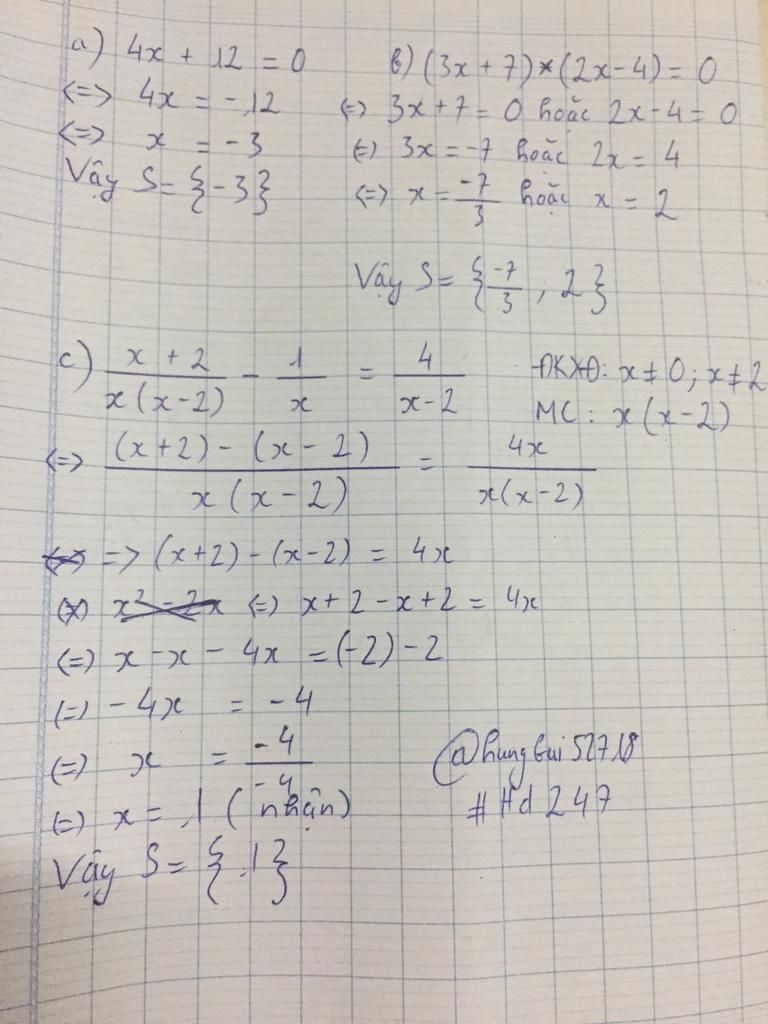 a) 4x + 12 = 0
<=> 4x = -12
<=> x = -3
Vậy S = {-3}
b) (3x+7)*(2x-4) = 0
<=> 3x+7 = 0 hoặc 2x-4 = 0
<=> 3x = -7 hoặc 2x = 4
<=> x = -7/3 hoặc x = 2
Vậy S = {-7/3, 2}
c) (x+2)/(x(x-2)) - 1/x = 4/(x-2)
ĐKXĐ: x ≠ 0; x ≠ 2
MC: x(x-2)
<=> ((x+2)-(x-2))/(x(x-2)) = 4x/(x(x-2))
=> (x+2)-(x-2) = 4x
<=> x+2-x+2 = 4x
<=> x-x-4x = (-2)-2
<=> -4x = -4
<=> x = -4/-4
<=> x = 1 (nhận)
Vậy S = {1}
@hungbui52718
#Hd247